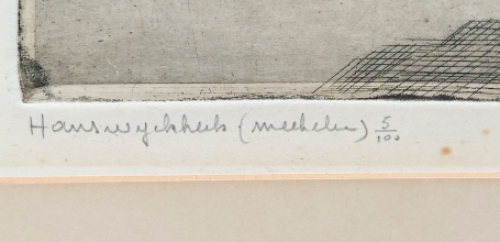 Hanswyckkerk (mechelen) 5/100